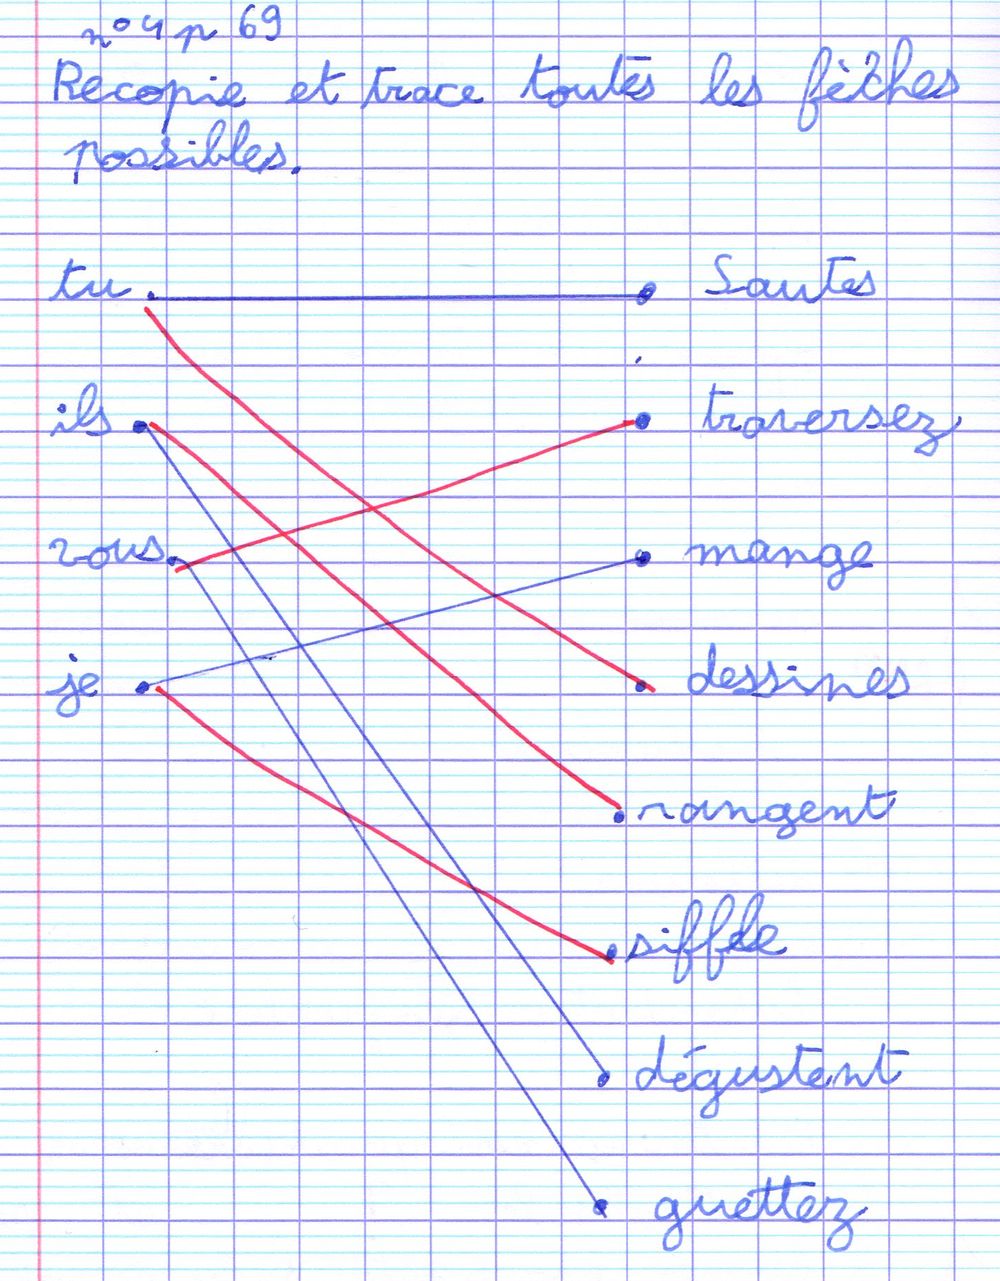 n° 4 p 69
Recopie et trace toutes les fèches
possibles.
tu Sautes
ils traversez
vous mange
je dessines
rangent
siffle
dégustent
guettez